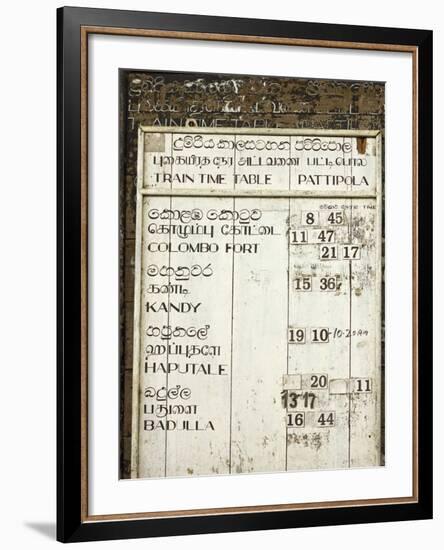 දුම්රිය කාලසටහන පට්ටිපොල
புகையிரத நேர அட்டவணை பட்டிபொல
TRAIN TIME TABLE PATTIPOLA
කොළඹ කොටුව 8 45
கொழும்பு கோட்டை 11 47
COLOMBO FORT 21 17
මහනුවර
கண்டி 15 36
KANDY
හපුතලේ
ஹப்புதளே 19 10
HAPUTALE
බදුල්ල 20 11
பதுளை 13 17
BADULLA 16 44